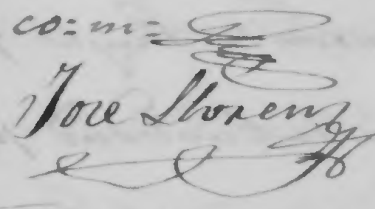 co=m=
Jose Lloren